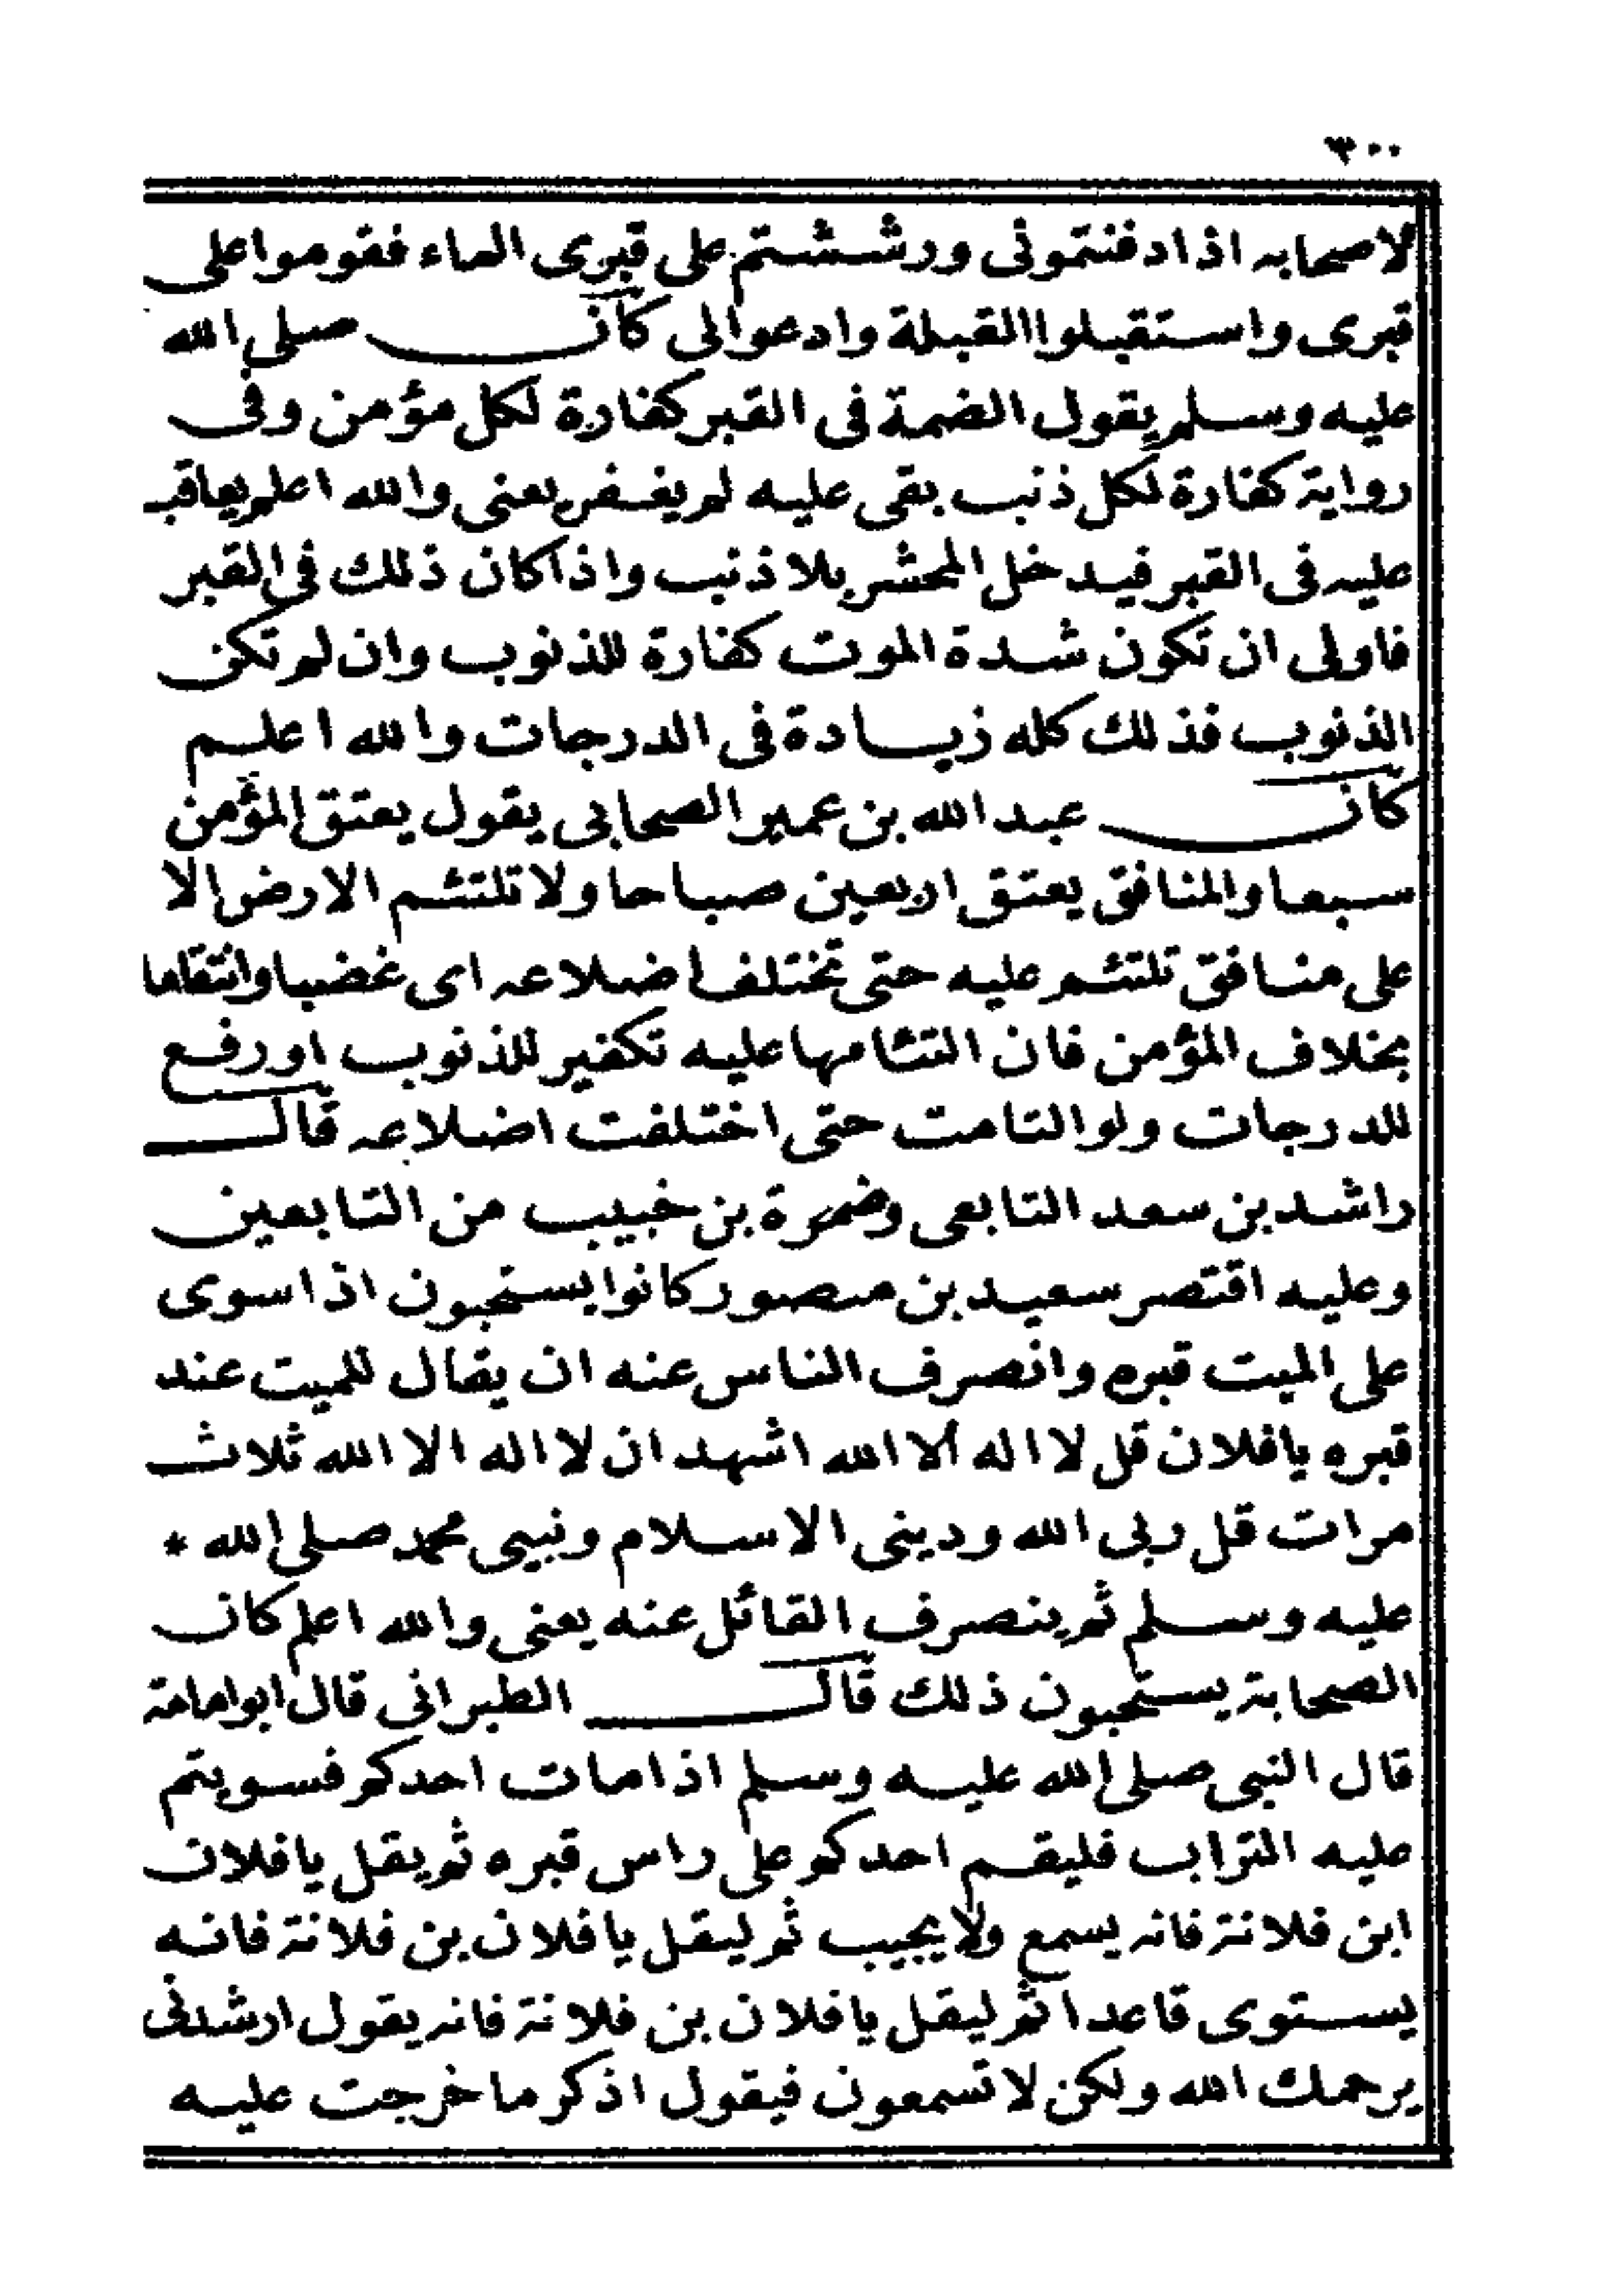 ٣٠٠
لاصحابه اذا دفنتمونى ورششتم على قبرى الماء فقوموا على
قبرى واستقبلوا القبلة وادعوا لى كان صلى الله
عليه وسلم يقول الضمة فى القبر كفارة لكل مؤمن وفى
رواية كفارة لكل ذنب بقى عليه لم يغفر يعنى والله اعلم يعاقب
عليه فى القبر فيدخل المحشر بلا ذنب واذا كان ذلك فى القبر
فاولى ان تكون شدة الموت كفارة للذنوب وان لم تكن
الذنوب فذلك كله زيادة فى الدرجات والله اعلم
كان عبد الله بن عمير الصحابى يقول يعتق المؤمن
سبعا والمنافق يعتق اربعين صباحا ولا تلتئم الارض الا
على منافق تلتئم عليه حتى تختلف اضلاعه اى غضبا وانتقاما
بخلاف المؤمن فان التئامها عليه تكفير للذنوب او رفع
للدرجات ولو التامت حتى اختلفت اضلاعه قال
راشد بن سعد التابعى وضمرة بن خبيب من التابعين
وعليه اقتصر سعيد بن منصور كانوا يستحبون اذا سوى
على الميت قبره وانصرف الناس عنه ان يقال للميت عند
قبره يا فلان قل لا اله ألا الله اشهد ان لا اله الا الله ثلاث
مرات قل ربى الله ودينى الاسلام ونبيى محمد صلى الله *
عليه وسلم ثم ينصرف القائل عنه يعنى والله اعلم كان
الصحابة يستحبون ذلك قال الطبرانى قال ابو امامة
قال النبى صلى الله عليه وسلم اذا مات احدكم فسويتم
عليه التراب فليقم احدكم على راس قبره ثم يقل يا فلان
ابن فلانة فانه يسمع ولا يجيب ثم ليقل يا فلان بن فلانة فانه
يستوى قاعدا ثم ليقل يا فلان بن فلانة فانه يقول ارشدنى
يرحمك الله ولكن لا تسمعون فيقول اذكر ما خرجت عليه